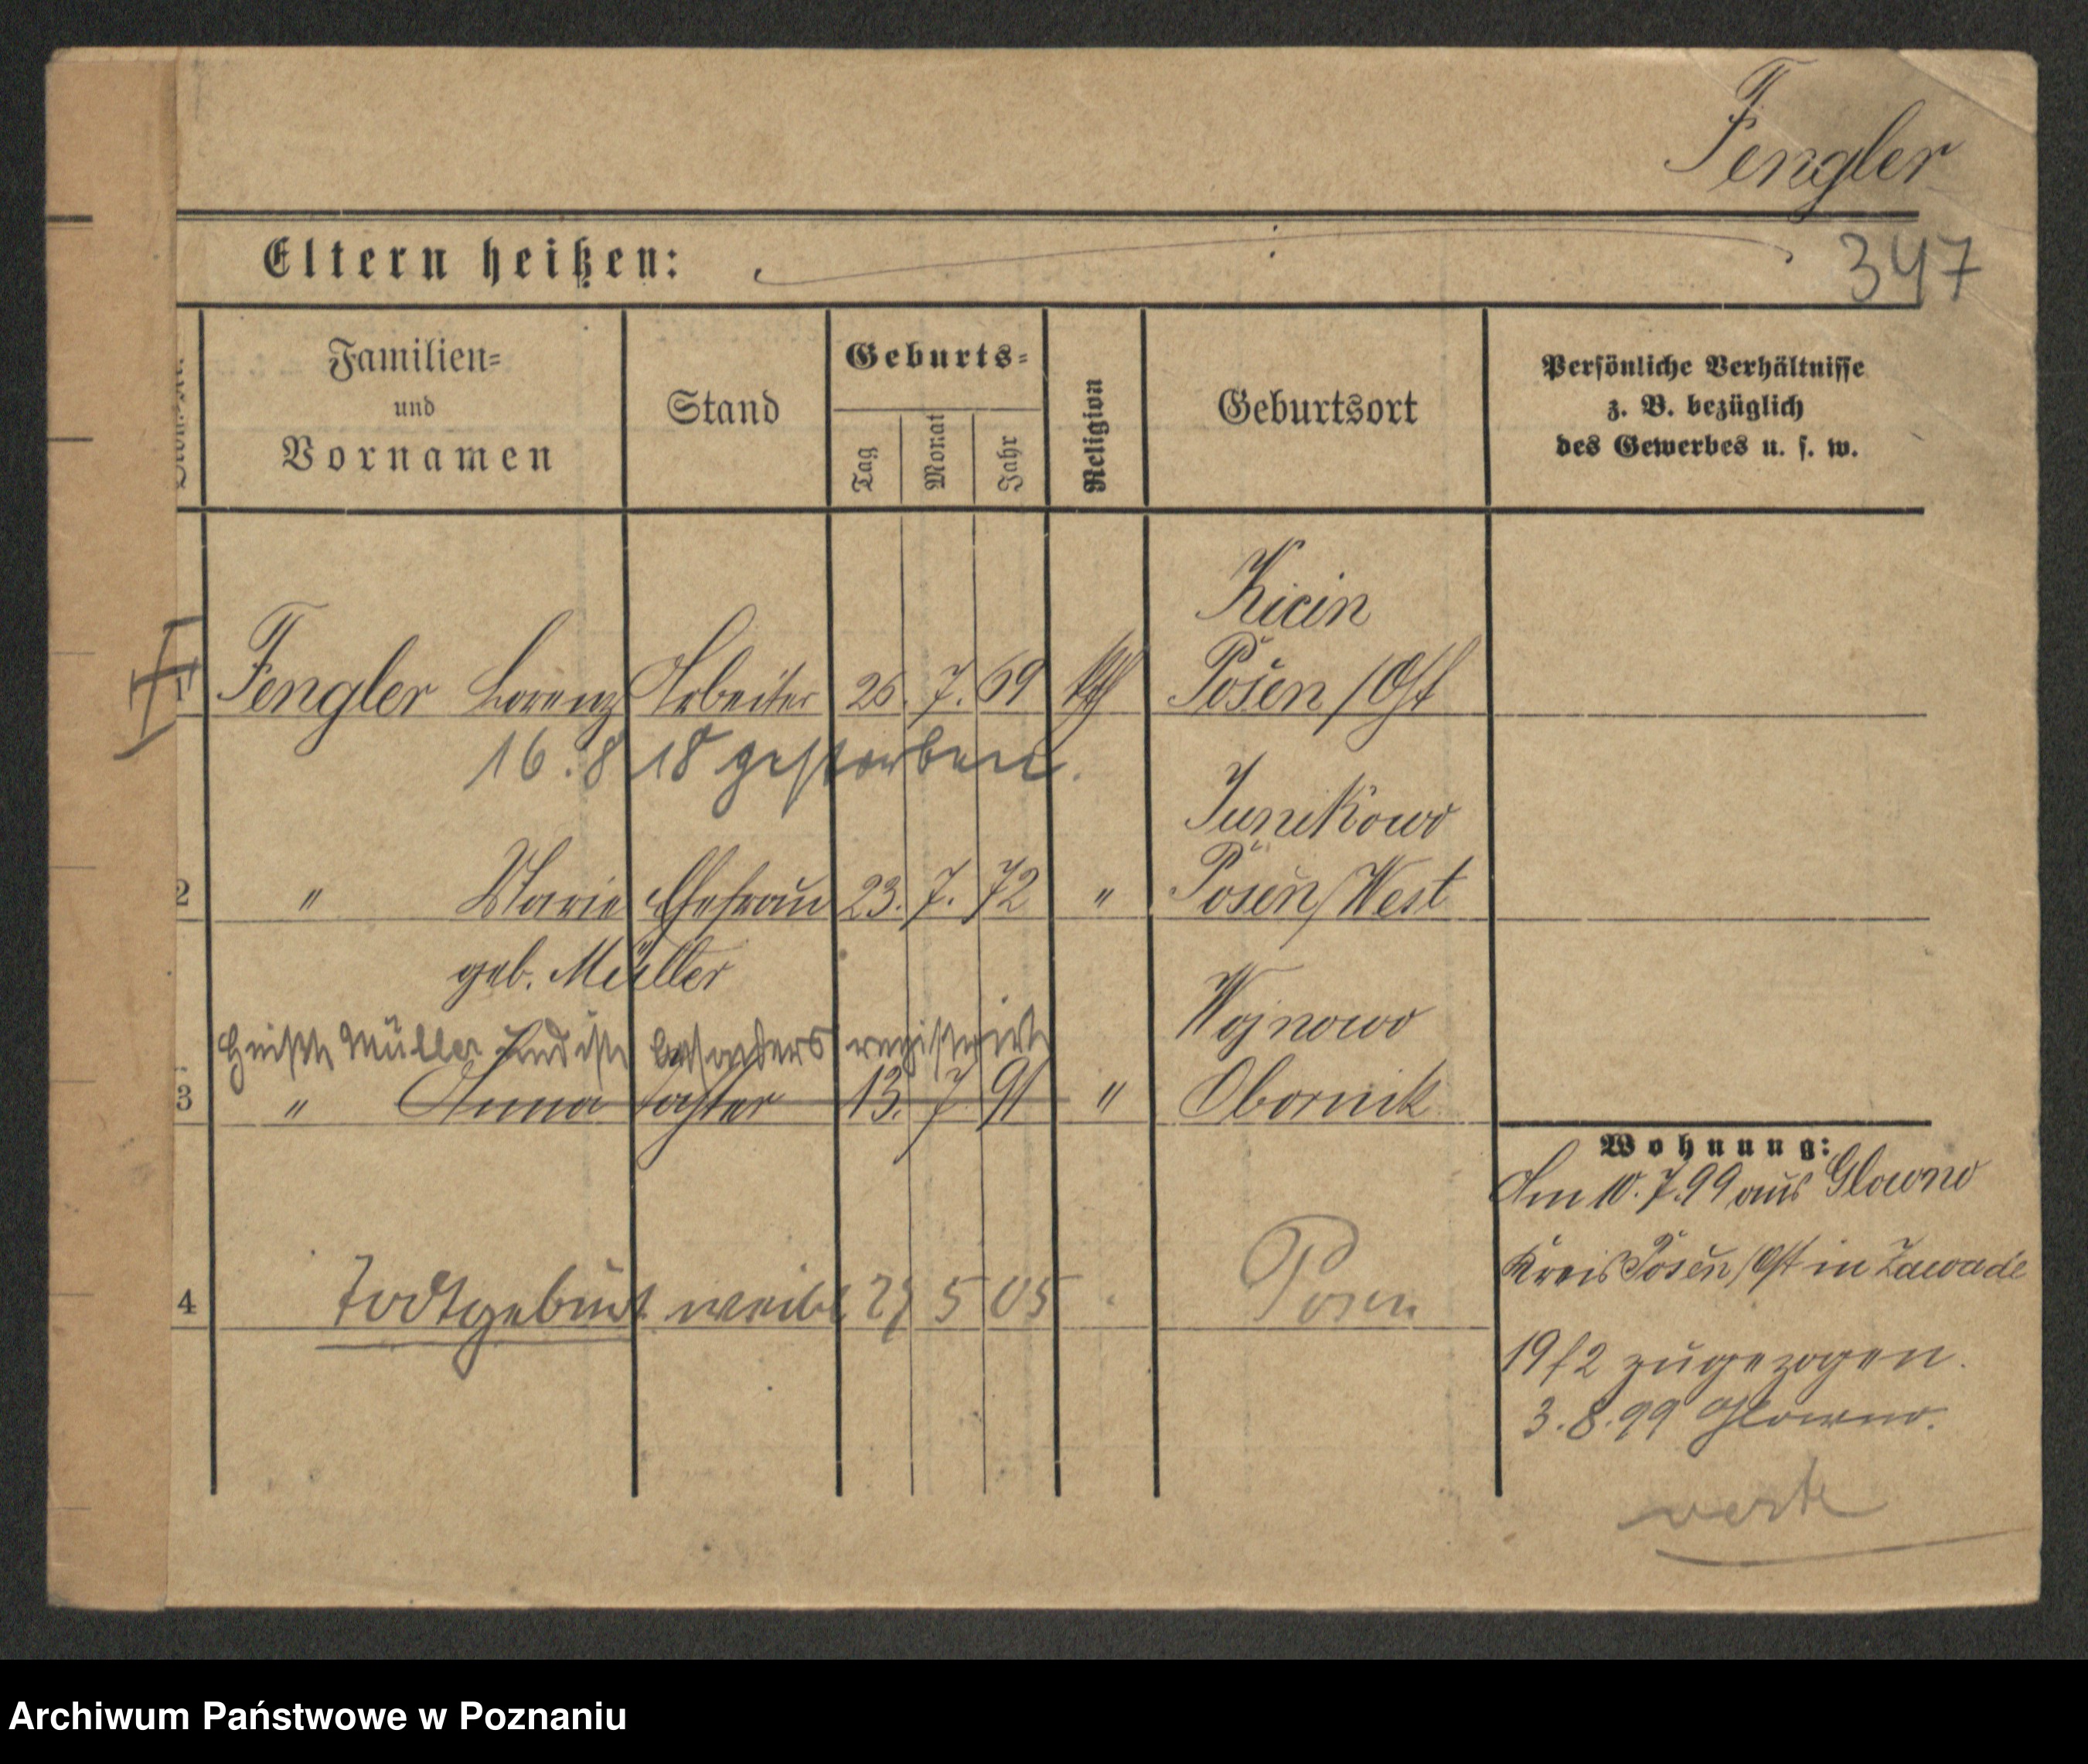 Fengler
347
Eltern heißen:
Familien=
und
Vornamen
Stand
Geburts=
Tag
Monat
Jahr
Religion
Geburtsort
Persönliche Verhältnisse
z. B. bezüglich
des Gewerbes u. s. w.
Kicin
1 Fengler Lorenz Arbeiter 26. 7. 69 kth Posen/Ost
16. 8 18 gestorben.
Junikowo
2 " Marie Ehefrau 23. 7. 72 " Posen/West
geb. Müller
Wojnowo
heißt Müller und ist besonders registrirt
3 " Anna Tochter 13. 7 91 " Obornik
Wohnung:
Am 10. 7. 99 aus Glowno
Kreis Posen/Ost in Zawade
4 Todtgeburt weibl 29 5 05 Posen
19/2 zugezogen.
3. 8. 99 Glowno.
Archiwum Państwowe w Poznaniu